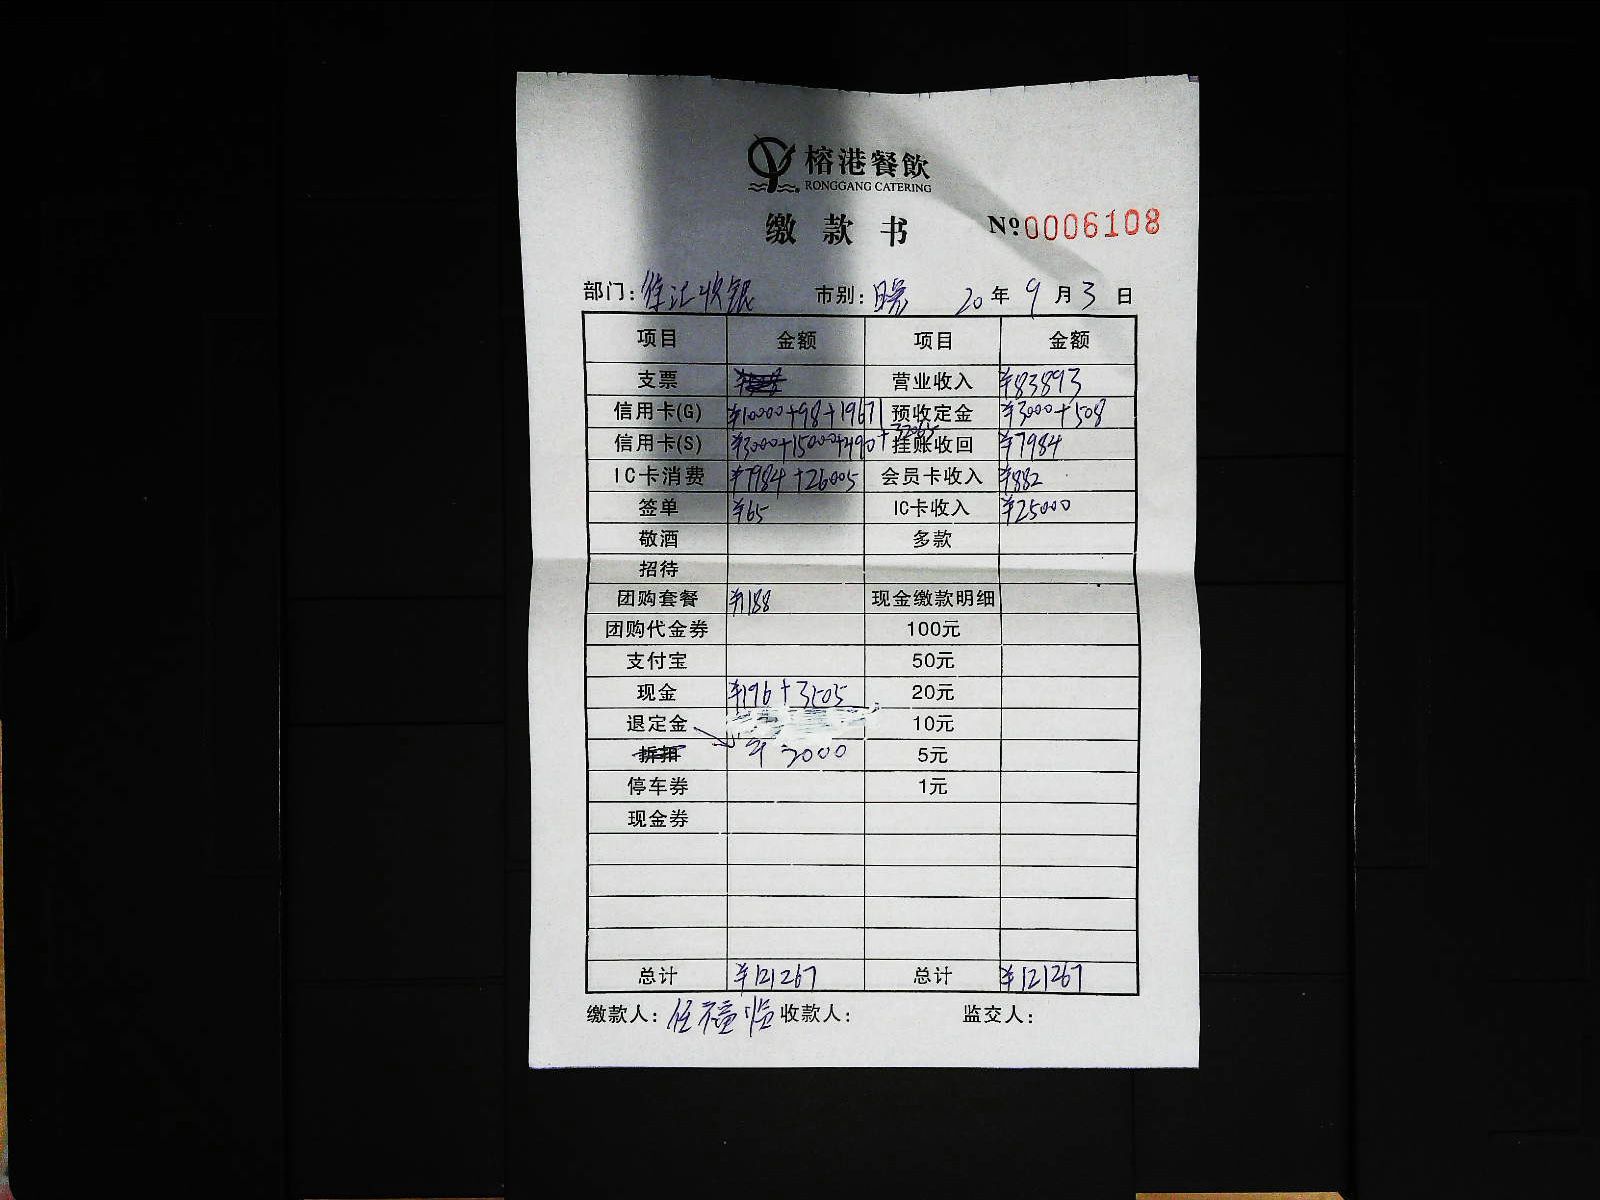 榕港餐飲
RONGGANG CATERING
缴款书 №0006108
部门: 徐汇收银 市别: 晚 20年 9月 3日
项目 金额 项目 金额
支票 营业收入 ¥83893
信用卡(G) ¥10000+98+19671 预收定金 ¥3000+508
信用卡(S) ¥3000+15000+490+32065 挂账收回 ¥7984
IC卡消费 ¥7984+26005 会员卡收入 ¥882
签单 ¥65 IC卡收入 ¥25000
敬酒 多款
招待
团购套餐 ¥188 现金缴款明细
团购代金券 100元
支付宝 50元
现金 ¥196+3505 20元
退定金 10元
折扣 ¥3000 5元
停车券 1元
现金券
总计 ¥121267 总计 ¥121267
缴款人: 收款人: 监交人: